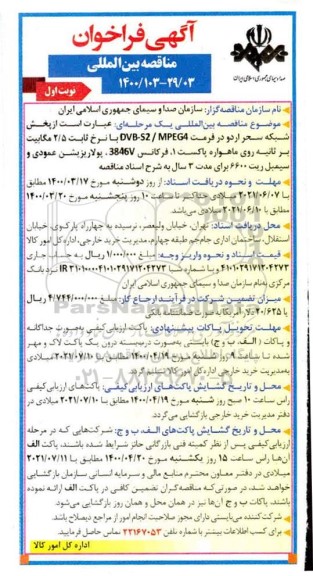 آگهی فراخوان
مناقصه بین‌المللی
۱۴۰۰/۱۰۳-۲۹/۰۳
نوبت اول
صدا و سیمای جمهوری اسلامی ایران
نام سازمان مناقصه‌گزار: سازمان صدا و سیمای جمهوری اسلامی ایران
موضوع مناقصه بین‌المللی یک مرحله‌ای: عبارت است از پخش
شبکه سحر اردو در فرمت DVB-S2 / MPEG4 با نرخ ثابت ۲/۵ مگابیت
بر ثانیه روی ماهواره پاکست ۱، فرکانس 3846V، پولاریزیشن عمودی و
سیمبل ریت ۶۶۰۰ برای مدت ۳ سال به شرح اسناد مناقصه
مهلت و نحوه دریافت اسناد: از روز دوشنبه مورخ ۱۴۰۰/۰۳/۱۷ مطابق
با ۲۰۲۱/۰۶/۰۷ میلادی حداکثر تا ساعت ۱۰ روز پنجشنبه مورخ ۱۴۰۰/۰۳/۲۰
مطابق با ۲۰۲۱/۰۶/۱۰ میلادی می‌باشد.
محل دریافت اسناد: تهران، خیابان ولیعصر، نرسیده به چهارراه پارک‌وی، خیابان
استقلال، ساختمان اداری جام‌جم طبقه چهارم، مدیریت خرید خارجی، اداره کل امور کالا
قیمت اسناد و نحوه واریز وجه: مبلغ ۱/۰۰۰/۰۰۰ ریال به حساب جاری
۴۱۰۱۰۲۹۱۷۱۲۰۴۲۷۳ و یا شماره شبا IR نزد بانک
مرکزی به‌نام سازمان صدا و سیمای جمهوری اسلامی ایران
میزان تضمین شرکت در فرآیند ارجاع کار: مبلغ ۴/۷۴۴/۰۰۰/۰۰۰ ریال
یا ۲۰/۶۲۵ دلار آمریکا
مهلت تحویل پاکات پیشنهادی: پاکت ارزیابی کیفی به‌صورت جداگانه
و پاکات (الف، ب و ج) بایستی به‌صورت دربسته درون یک پاکت لاک و مهر
شده تا ساعت ۹ روز شنبه مورخ ۱۴۰۰/۰۴/۱۹ مطابق با ۲۰۲۱/۰۷/۱۰ میلادی
به مدیریت خرید خارجی اداره کل امور کالا تسلیم گردد.
محل و تاریخ گشایش پاکت‌های ارزیابی کیفی: پاکت‌های ارزیابی کیفی
راس ساعت ۱۰ صبح روز شنبه مورخ ۱۴۰۰/۰۴/۱۹ مطابق با ۲۰۲۱/۰۷/۱۰ میلادی در
دفتر مدیریت خرید خارجی بازگشایی می‌گردد.
محل و تاریخ گشایش پاکت‌های الف، ب و ج: شرکت‌هایی که در مرحله
ارزیابی کیفی پس از نظر کمیته فنی بازرگانی حائز شرایط شده باشند، پاکت الف
آن‌ها راس ساعت ۱۵ روز یکشنبه مورخ ۱۴۰۰/۰۴/۲۰ مطابق با ۲۰۲۱/۰۷/۱۱
میلادی در دفتر معاون محترم منابع مالی و سرمایه انسانی سازمان بازگشایی
خواهد شد، در صورتی‌که مناقصه‌گران تضمین کافی در پاکت الف ارائه نموده
باشند، پاکات ب و ج آن‌ها نیز در همان محل و همان روز بازگشایی می‌شود.
شرکت کننده می‌بایستی دارای مجوز صلاحیت انجام امور از مراجع ذیصلاح باشد.
برای کسب اطلاعات بیشتر با شماره تلفن ۲۲۱۶۷۰۵۳ تماس حاصل فرمایید.
اداره کل امور کالا